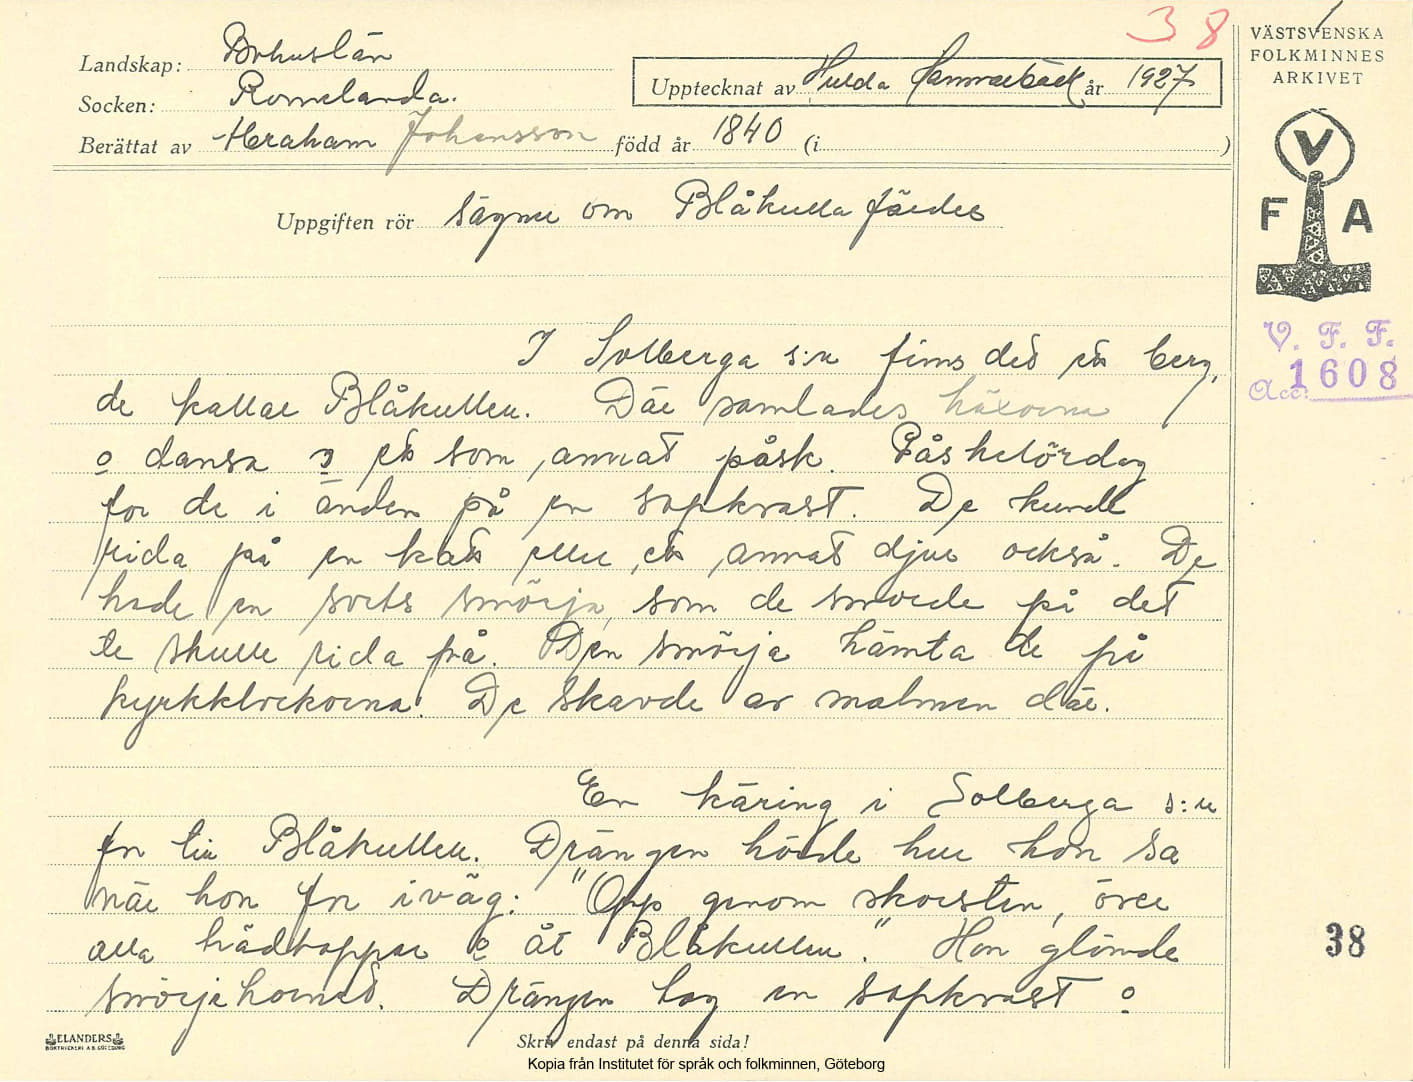 38
VÄSTSVENSKA
FOLKMINNES
ARKIVET
Landskap: Bohuslän
Socken: Romelanda.
Upptecknat av Hulda Hammarbäck år 1927
Berättat av Abraham Johansson född år 1840 (i )
Uppgiften rör Sägner om Blåkulla färder
V
F A
V. F. F.
Acc: 1608
I Solberga s:n finns det ett berg,
de kallar Blåkullen. Där samlades häxorna
o dansa o ett som annat påsk. Påskelördag
for de i änden på en sopkvast. De kunde
rida på en katt eller ett annat djur också. De
hade en sorts smörja, som de smorde på det
de skulle rida på. Den smörja hämta de på
kyrkklockorna. De skavde av malmen där.
En käring i Solberga s:n
for till Blåkullen. Drängen hörde hur hon sa
när hon for iväg: "Opp genom skorsten, över
alla trädtoppar o åt Blåkullen." Hon glömde
smörjehornet. Drängen tog en sopkvast o
38
ELANDERS
BOKTRYCKERI A.B. GÖTEBORG
Skriv endast på denna sida!
Kopia från Institutet för språk och folkminnen, Göteborg